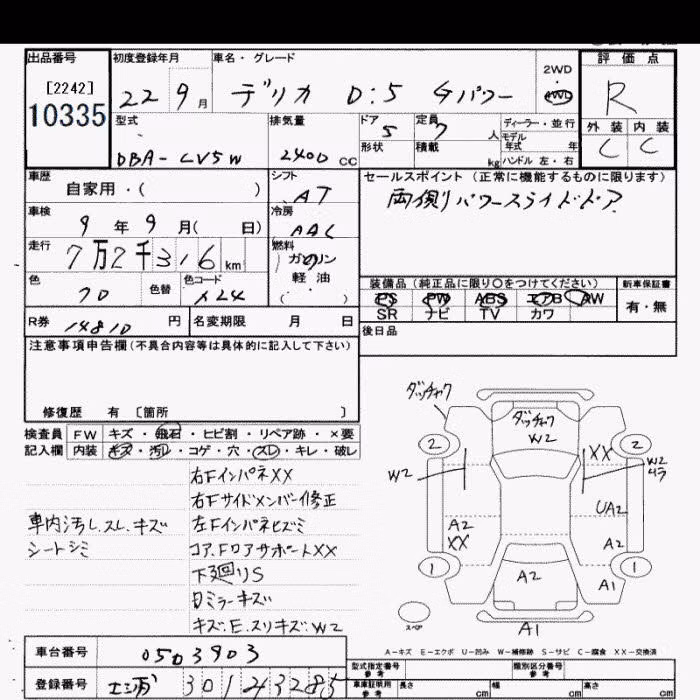 出品番号
[2242]
10335
初度登録年月
22 9月
車名・グレード
デリカ D:5 Gパワー
2WD
4WD
評価点
R
外装 内装
C C
型式
DBA-CV5W
排気量
2400 CC
ドア 5
形状
定員 7 人
積載 kg
ディーラー・並行
モデル年式 年
ハンドル 左・右
車歴
自家用・( )
シフト
AT
車検
9年9月( 日)
冷房
AAC
走行
7万2千316 km
燃料
ガソリン
軽油
( )
色
色替
色コード
X24
R券 14810 円
名変期限 月 日
セールスポイント(正常に機能するものに限ります)
両側パワースライドドア
装備品(純正品に限り○をつけてください)
PS PW ABS エアB AW
SR ナビ TV カワ
新車保証書
有・無
後日品
注意事項申告欄(不具合内容等は具体的に記入して下さい)
修復歴 有 〔箇所 〕
検査員 FW キズ・飛石・ヒビ割・リペア跡・×要
記入欄 内装 キズ・汚レ・コゲ・穴・スレ・キレ・破レ
右FインパネXX
右Fサイドメンバー修正
車内汚レ.スレ.キズ
左Fインパネヒズミ
シートシミ
コア.FロアサポートXX
下廻りS
日ミラーキズ
キズ.E.スリキズ.W2
ダッチャク
ダッチャク
W2
2
2
XX
W2
W2
ムラ
UA2
A2
XX
A2
1
1
A2
A1
スペア
A1
A-キズ E-エクボ U-凹み W-補修跡 S-サビ C-腐食 XX-交換済
車台番号 0503903
登録番号 301 43285
型式指定番号 参考
類別区分番号 参考
車庫証明用 参考
長さ cm 幅 cm 高さ cm